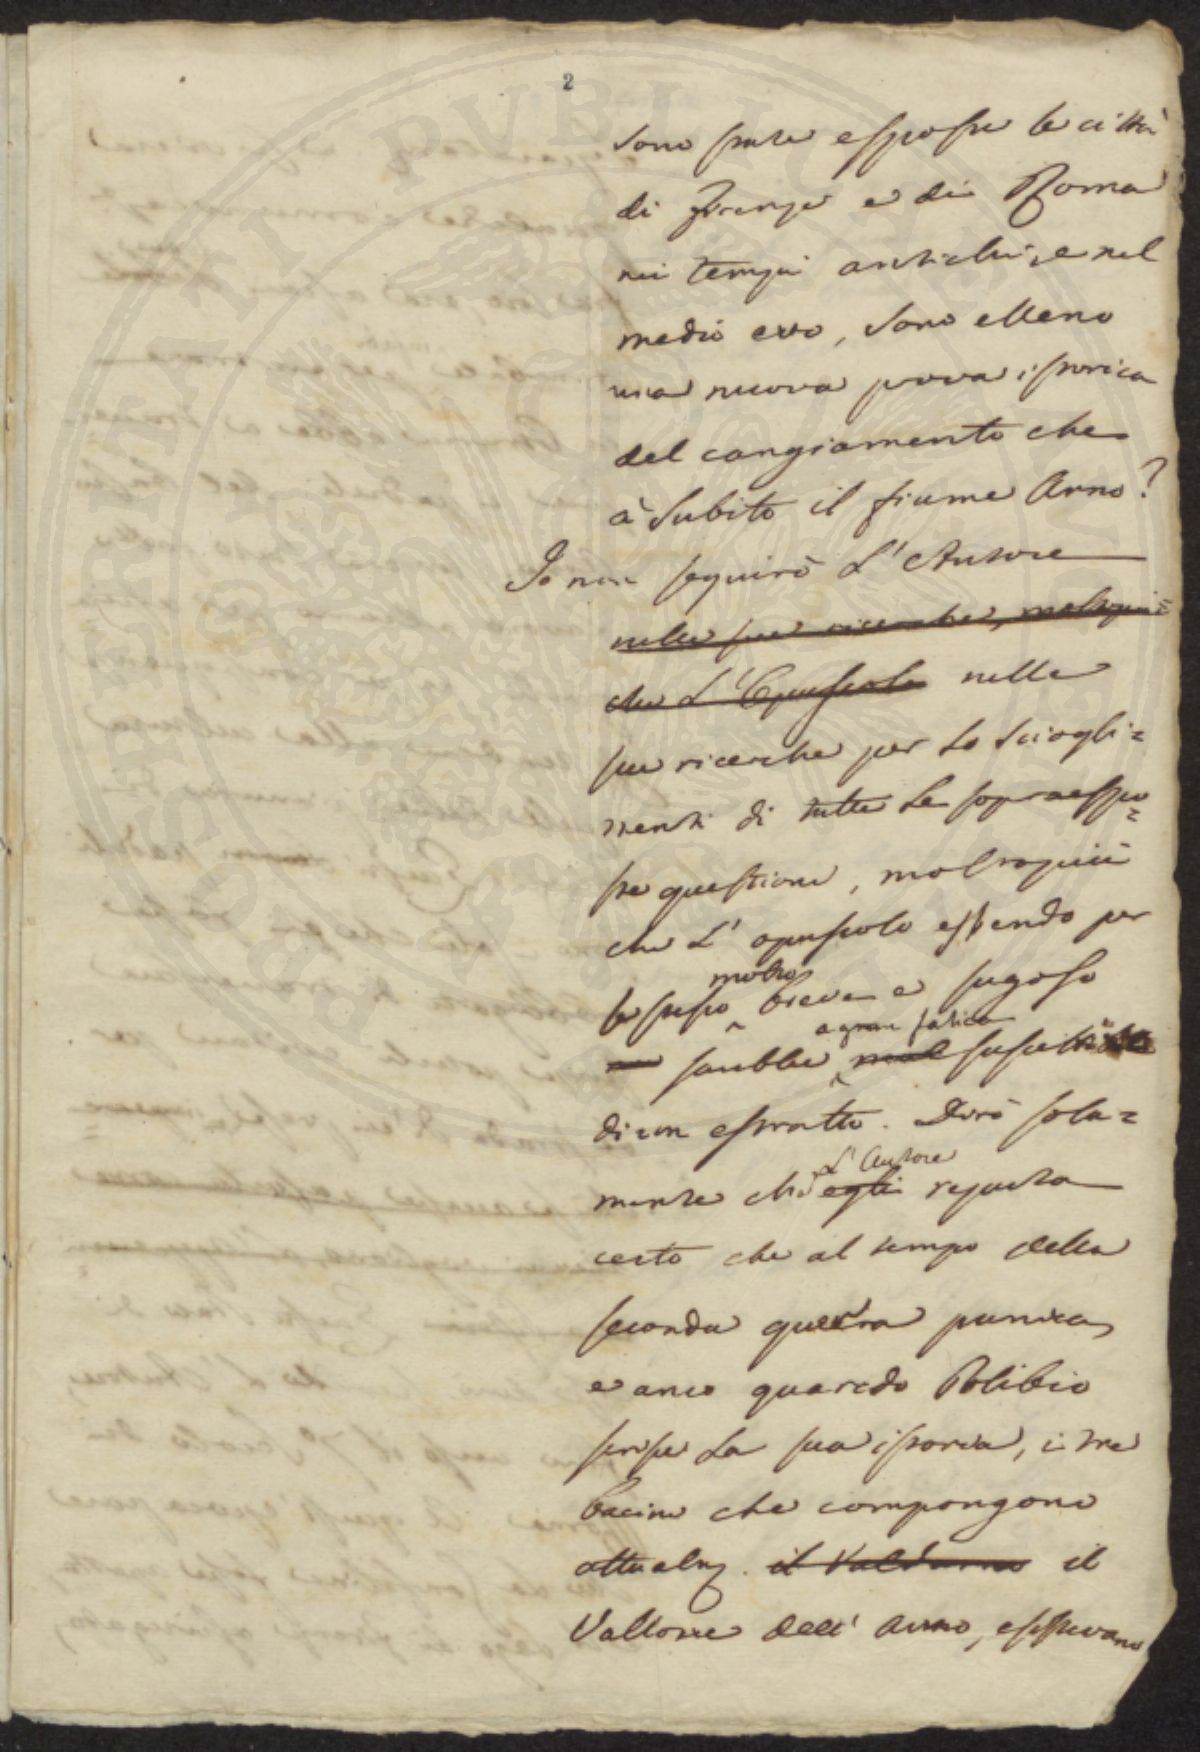 2
sono state esposte le città
di Firenze e di Roma
nei tempi antichi, e nel
medio evo, sono elleno
una nuova prova istorica
del cangiamento che
à subito il fiume Arno?
Io non seguirò l'Autore
nelle sue ricerche, moltopiù=
che l'Opuscolo nelle
sue ricerche per lo sciogli=
mento di tutte le sopraespo=
ste questioni, moltopiù
che l'opuscolo essendo per
molto
se stesso breve e sugoso
a gran fatica
sarebbe mal suscettibile
di un estratto. Dirò sola=
l'Autore
mente che egli reputa
certo che al tempo della
seconda guerra punica,
e anco quando Polibio
scrisse la sua istoria, i tre
bacini che compongono
attualm. il Valdarno il
Vallone dell'Arno, esistevano
PROSPERITATI PVBLICAE AVGENDAE